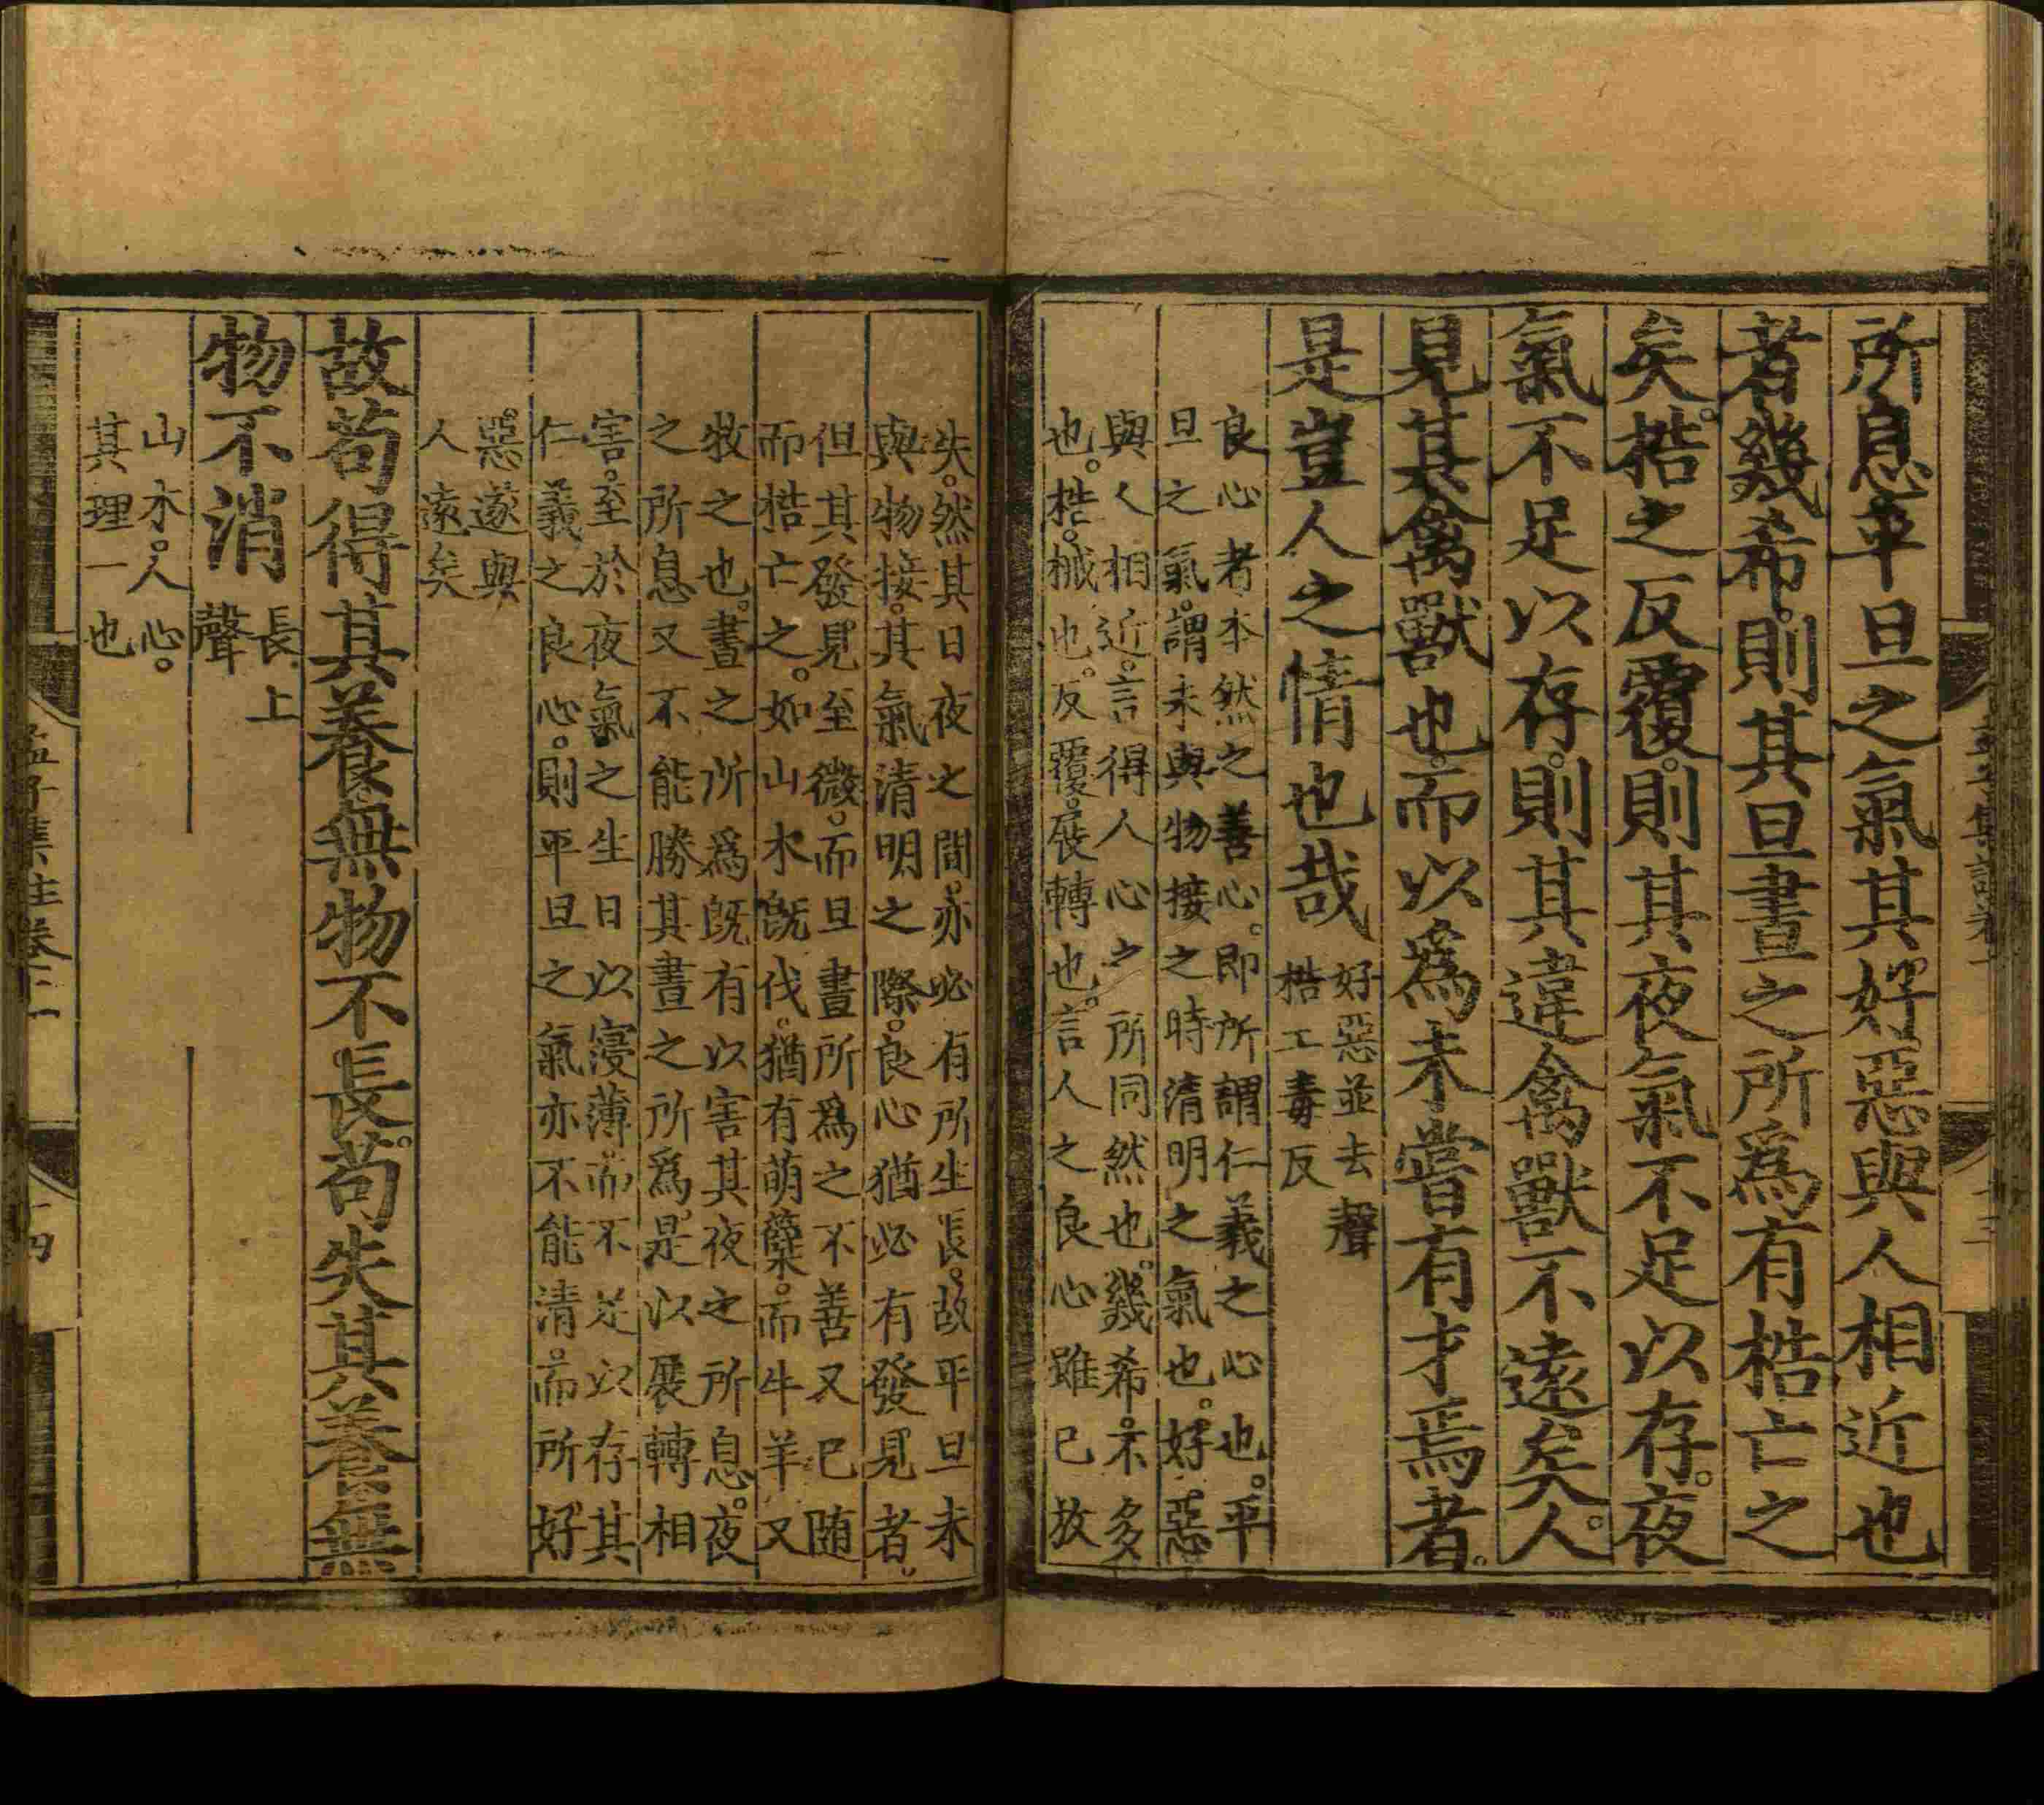 所息平旦之氣其好惡與人相近也
者幾希。則其旦晝之所爲有梏亡之
矣。梏之反覆。則其夜氣不足以存。夜
氣不足以存。則其違禽獸不遠矣。人
見其禽獸也。而以爲未嘗有才焉者。
是豈人之情也哉
好惡並去聲
梏工毒反
良心者本然之善心。即所謂仁義之心也。平
旦之氣。謂未與物接之時清明之氣也。好惡
與人相近。言得人心之所同然也。幾希。不多
也。梏。械也。反覆。展轉也。言人之良心雖已放
失。然其日夜之間。亦必有所生長。故平旦未
與物接。其氣清明之際。良心猶必有發見者。
但其發見至微。而旦晝所爲之不善又已随
而梏亡之。如山木旣伐。猶有萌蘖。而牛羊又
牧之也。晝之所爲旣有以害其夜之所息。夜
之所息又不能勝其晝之所爲。是以展轉相
害。至於夜氣之生日以寖薄而不足以存其
仁義之良心。則平旦之氣亦不能清。而所好
惡。遂與
人遠矣
故苟得其養。無物不長。苟失其養無
物不消
長上
聲
山木。人心。
其理一也
孟子集註卷十一
十四